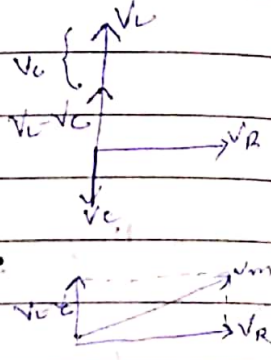 VL
VC {
VL-VC
VR
VC
Vm
VL-C
VR